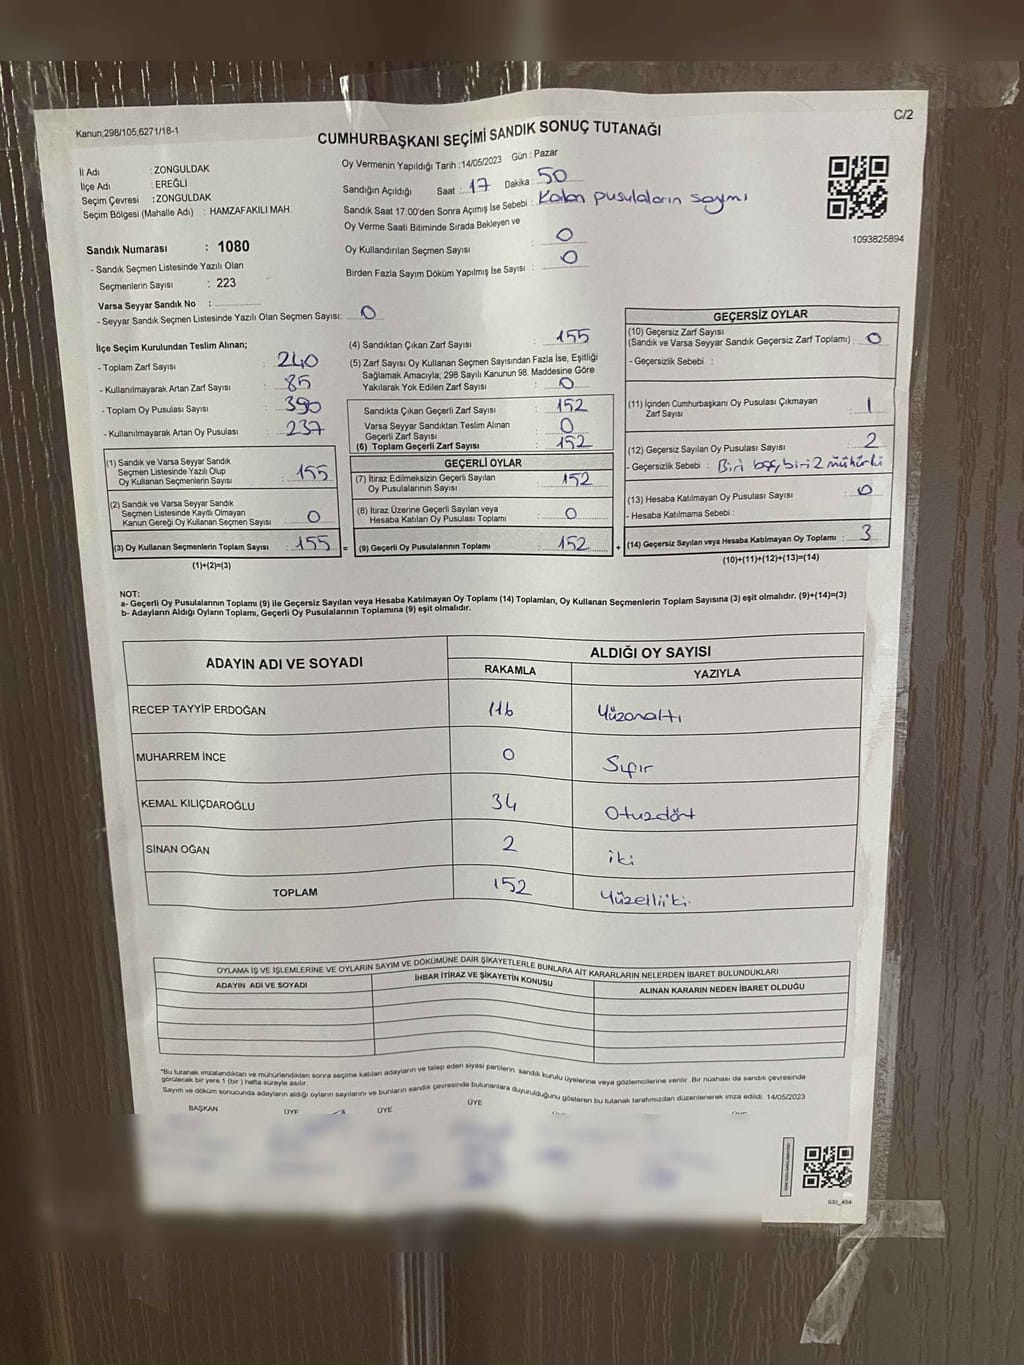 Kanun;298/105,6271/18-1
C/2
CUMHURBAŞKANI SEÇİMİ SANDIK SONUÇ TUTANAĞI
İl Adı : ZONGULDAK
İlçe Adı : EREĞLİ
Seçim Çevresi : ZONGULDAK
Seçim Bölgesi (Mahalle Adı) : HAMZAFAKILI MAH.
Sandık Numarası : 1080
- Sandık Seçmen Listesinde Yazılı Olan
Seçmenlerin Sayısı : 223
Varsa Seyyar Sandık No :
- Seyyar Sandık Seçmen Listesinde Yazılı Olan Seçmen Sayısı: 0
Oy Vermenin Yapıldığı Tarih :14/05/2023 Gün : Pazar
Sandığın Açıldığı Saat : 17 Dakika : 50
Sandık Saat 17:00'den Sonra Açımış İse Sebebi : Kalan pusulaların sayımı
Oy Verme Saati Bitiminde Sırada Bekleyen ve
Oy Kullandırılan Seçmen Sayısı : 0
Birden Fazla Sayım Döküm Yapılmış İse Sayısı : 0
1093825894
İlçe Seçim Kurulundan Teslim Alınan;
- Toplam Zarf Sayısı : 240
- Kullanılmayarak Artan Zarf Sayısı : 85
- Toplam Oy Pusulası Sayısı : 390
- Kullanılmayarak Artan Oy Pusulası : 237
(1) Sandık ve Varsa Seyyar Sandık
Seçmen Listesinde Yazılı Olup
Oy Kullanan Seçmenlerin Sayısı : 155
(2) Sandık ve Varsa Seyyar Sandık
Seçmen Listesinde Kayıtlı Olmayan
Kanun Gereği Oy Kullanan Seçmen Sayısı : 0
(3) Oy Kullanan Seçmenlerin Toplam Sayısı : 155
(1)+(2)=(3)
(4) Sandıktan Çıkan Zarf Sayısı : 155
(5) Zarf Sayısı Oy Kullanan Seçmen Sayısından Fazla İse, Eşitliği
Sağlamak Amacıyla; 298 Sayılı Kanunun 98. Maddesine Göre
Yakılarak Yok Edilen Zarf Sayısı : 0
Sandıkta Çıkan Geçerli Zarf Sayısı : 152
Varsa Seyyar Sandıktan Teslim Alınan
Geçerli Zarf Sayısı : 0
(6) Toplam Geçerli Zarf Sayısı : 152
GEÇERLİ OYLAR
(7) İtiraz Edilmeksizin Geçerli Sayılan
Oy Pusulalarının Sayısı : 152
(8) İtiraz Üzerine Geçerli Sayılan veya
Hesaba Katılan Oy Pusulası Toplamı : 0
= (9) Geçerli Oy Pusulalarının Toplamı : 152
GEÇERSİZ OYLAR
(10) Geçersiz Zarf Sayısı
(Sandık ve Varsa Seyyar Sandık Geçersiz Zarf Toplamı) : 0
- Geçersizlik Sebebi :
(11) İçinden Cumhurbaşkanı Oy Pusulası Çıkmayan
Zarf Sayısı : 1
(12) Geçersiz Sayılan Oy Pusulası Sayısı : 2
- Geçersizlik Sebebi : Biri boş, biri 2 mühürlü
(13) Hesaba Katılmayan Oy Pusulası Sayısı : 0
- Hesaba Katılmama Sebebi :
+ (14) Geçersiz Sayılan veya Hesaba Katılmayan Oy Toplamı : 3
(10)+(11)+(12)+(13)=(14)
NOT:
a- Geçerli Oy Pusulalarının Toplamı (9) ile Geçersiz Sayılan veya Hesaba Katılmayan Oy Toplamı (14) Toplamları, Oy Kullanan Seçmenlerin Toplam Sayısına (3) eşit olmalıdır. (9)+(14)=(3)
b- Adayların Aldığı Oyların Toplamı, Geçerli Oy Pusulalarının Toplamına (9) eşit olmalıdır.
ADAYIN ADI VE SOYADI ALDIĞI OY SAYISI
RAKAMLA YAZIYLA
RECEP TAYYİP ERDOĞAN 116 Yüzonaltı
MUHARREM İNCE 0 Sıfır
KEMAL KILIÇDAROĞLU 34 Otuzdört
SİNAN OĞAN 2 iki
TOPLAM 152 Yüzelliiki.
OYLAMA İŞ VE İŞLEMLERİNE VE OYLARIN SAYIM VE DÖKÜMÜNE DAİR ŞİKAYETLERLE BUNLARA AİT KARARLARIN NELERDEN İBARET BULUNDUKLARI
ADAYIN ADI VE SOYADI İHBAR İTİRAZ VE ŞİKAYETİN KONUSU ALINAN KARARIN NEDEN İBARET OLDUĞU
"Bu tutanak imzalandıktan ve mühürlendikten sonra seçime katılan adayların ve talep eden siyasi partilerin sandık kurulu üyelerine veya gözlemcilerine verilir. Bir nüshası da sandık çevresinde
görülecek bir yere 1 (bir) hafta süreyle asılır.
Sayım ve döküm sonucunda adayların aldığı oyların sayılarını ve bunların sandık çevresinde bulunanlara duyurulduğunu gösteren bu tutanak tarafımızdan düzenlenerek imza edildi. 14/05/2023
BAŞKAN ÜYE ÜYE ÜYE